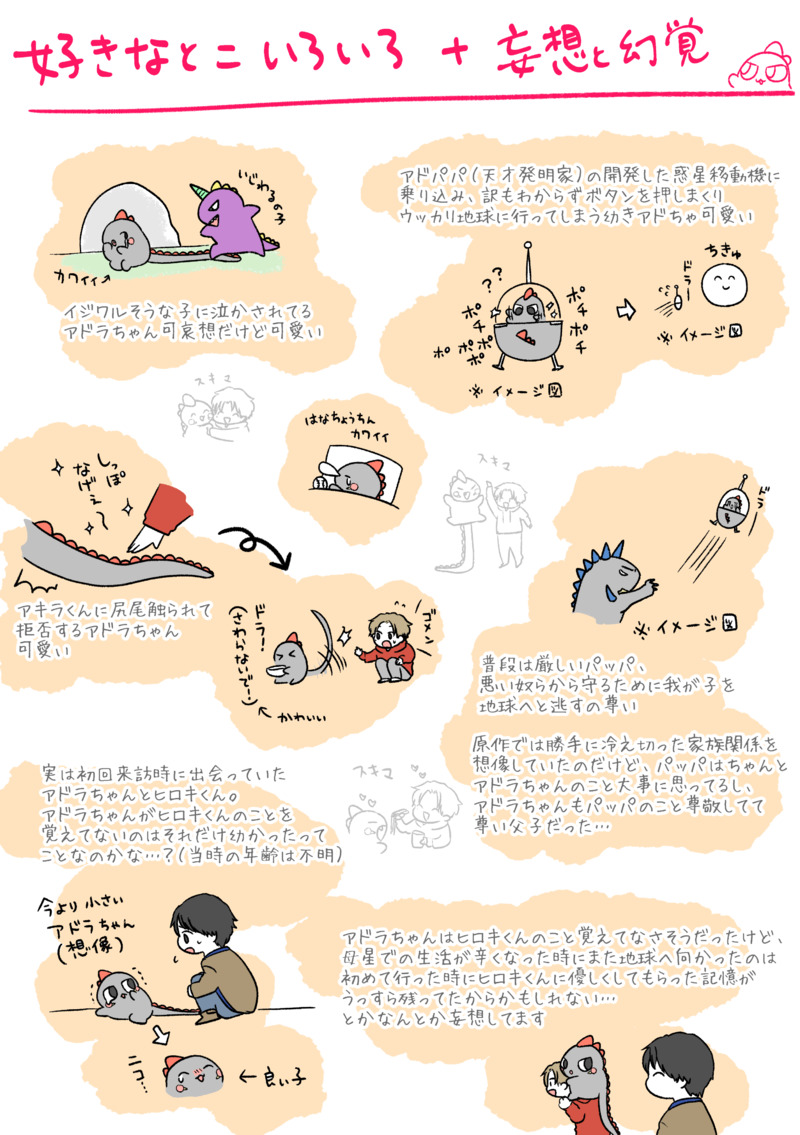 好きなとこ いろいろ + 妄想と幻覚
いじわるの子
カワイイ→
イジワルそうな子に泣かされてる
アドラちゃん可哀想だけど可愛い
アドパパ(天才発明家)の開発した惑星移動機に
乗り込み、訳もわからずボタンを押しまくり
ウッカリ地球に行ってしまう幼きアドちゃ可愛い
??
ポチ
ポチ
ポチ
ポ ポポポ
※イメージ図
ドラー
ちきゅ
※イメージ図
スキマ
はなちょうちん
カワイイ
スキマ
しっぽ
なげぇ〜
アキラくんに尻尾触られて
拒否するアドラちゃん
可愛い
ドラ!
(さわらないで!)
ゴメン
←かわいい
ドラ
※イメージ図
普段は厳しいパッパ、
悪い奴らから守るために我が子を
地球へと逃すの尊い
原作では勝手に冷え切った家族関係を
想像していたのだけど、パッパはちゃんと
アドラちゃんのこと大事に思ってるし、
アドラちゃんもパッパのこと尊敬してて
尊い父子だった…
実は初回来訪時に出会っていた
アドラちゃんとヒロキくん。
アドラちゃんがヒロキくんのことを
覚えてないのはそれだけ幼かったって
ことなのかな…?(当時の年齢は不明)
スキマ
今より小さい
アドラちゃん
(想像)
ニコ…
←良い子
アドラちゃんはヒロキくんのこと覚えてなさそうだったけど、
母星での生活が辛くなった時にまた地球へ向かったのは
初めて行った時にヒロキくんに優しくしてもらった記憶が
うっすら残ってたからかもしれない…
とかなんとか妄想してます